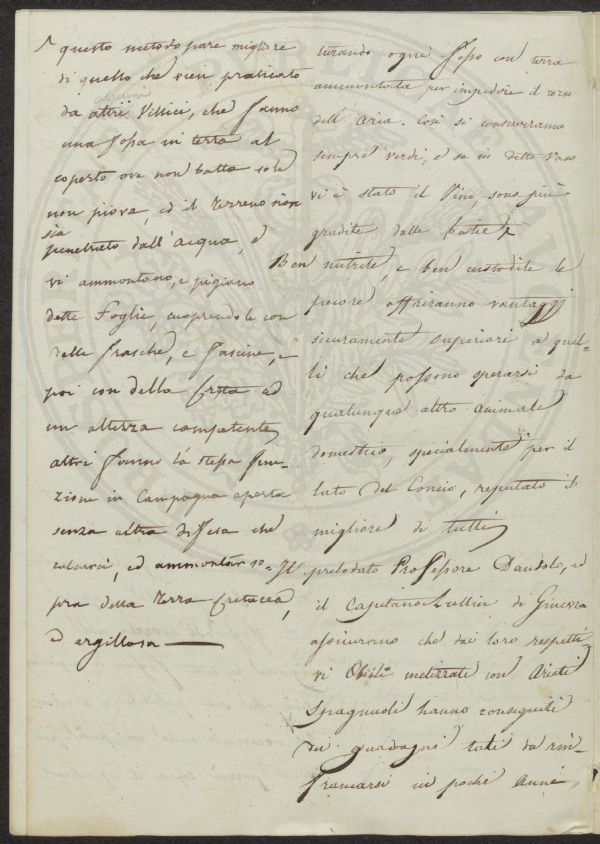 ^ questo metodo pare migliore
di quello che vien praticato
alcuni
da altri Villici, che fanno
una fossa in terra al
coperto ove non batta sole
non piova, ed il terreno non
sia
penetrato dall'acqua, e
vi ammontano, e pigiano
dette Foglie, cuoprendole con
delle frasche, e fascine, e
poi con della Creta ad
un altezza competente,
altri fanno la stessa fun-
zione in Campagna aperta
senza altra difesa che
calcarci, ed ammontar so-
pra della Terra Cretacea,
ed argillosa —
turando ogni fesso con terra
ammontata per impedire il corso
dell'Aria. Così si conserveranno
sempre verdi, e se in detto Vaso
vi è stato il Vino sono più
gradite dalle bestie
Ben nutrite, e ben custodite le
pecore offriranno vantaggi
sicuramente superiori a quel-
li che possono sperarsi da
qualunque altro animale
domestico, specialmente per il
lato del Concio, reputato il
migliore di tutti
Il prelodato Professore Dandolo, ed
il Capitano Lullin di Ginevra
assicurano che dai loro respetti
vi Ovili metizzati con Arieti
Spagnuoli hanno conseguiti
dei guadagni tali da rin-
francarsi in pochi Anni,